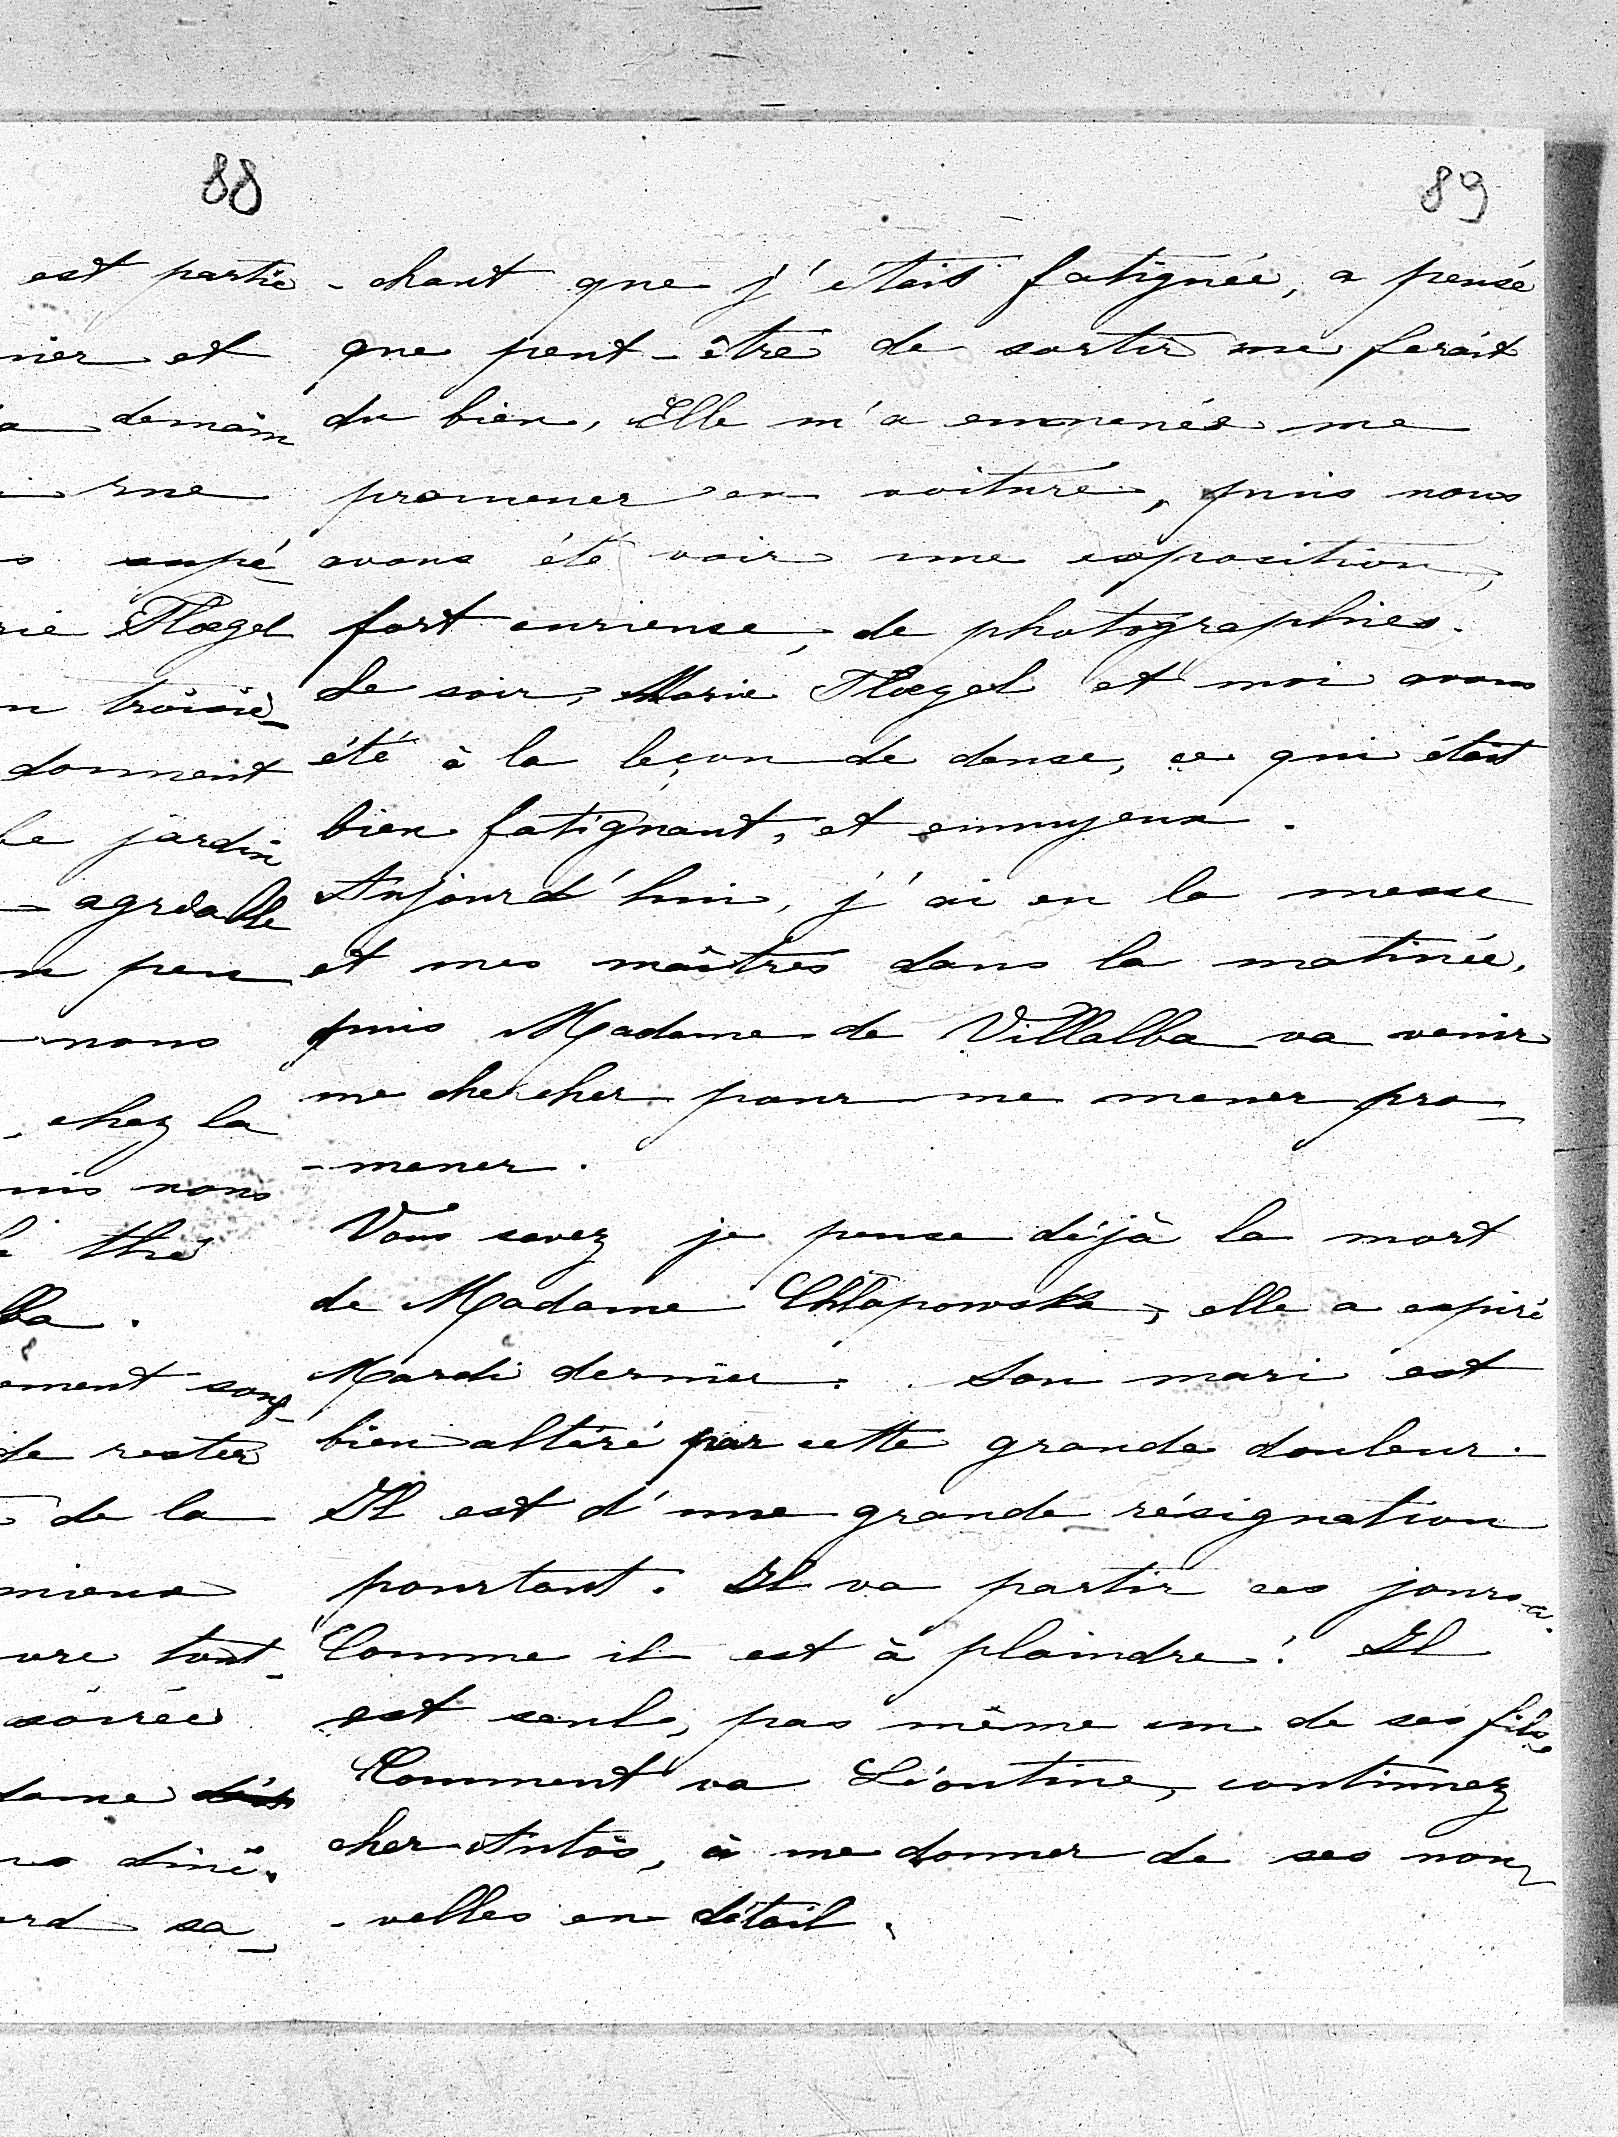 88
est partie
nier et
a demain
rue
s supé
rie Flœgel
n troisiè-
donnent
le jardin
agréable
n peu
nous
, chez la
uis nous
thé
lba.
ement souf-
de rester
de la
mieux
vre tout-
soirée
dame
ns dîné.
ord sa-
89
-chant que j'étais fatiguée, a pensé
que peut-être de sortir me ferait
du bien, Elle m'a emmenée me
promener en voiture, puis nous
avons été voir une exposition,
fort curieuse, de photographies.
Le soir, Marie Flœgel et moi avons
été à la leçon de danse, ce qui était
bien fatignant, et ennuyeux.
Aujourd'hui, j'ai eu la messe
et mes maîtres dans la matinée,
puis Madame de Villalba va venir
me chercher pour me mener pro-
-mener.
Vous savez je pense déjà la mort
de Madame Chłapowska, elle a expiré
Mardi dernier. Son mari est
bien altéré par cette grande douleur.
Il est d'une grande résignation
pourtant. Il va partir ces jours-ci.
Comme il est à plaindre! Il
est seul, pas même un de ses fils.
Comment va Léontine, continuez
cher Antoś, à me donner de ses nou-
-velles en détail.